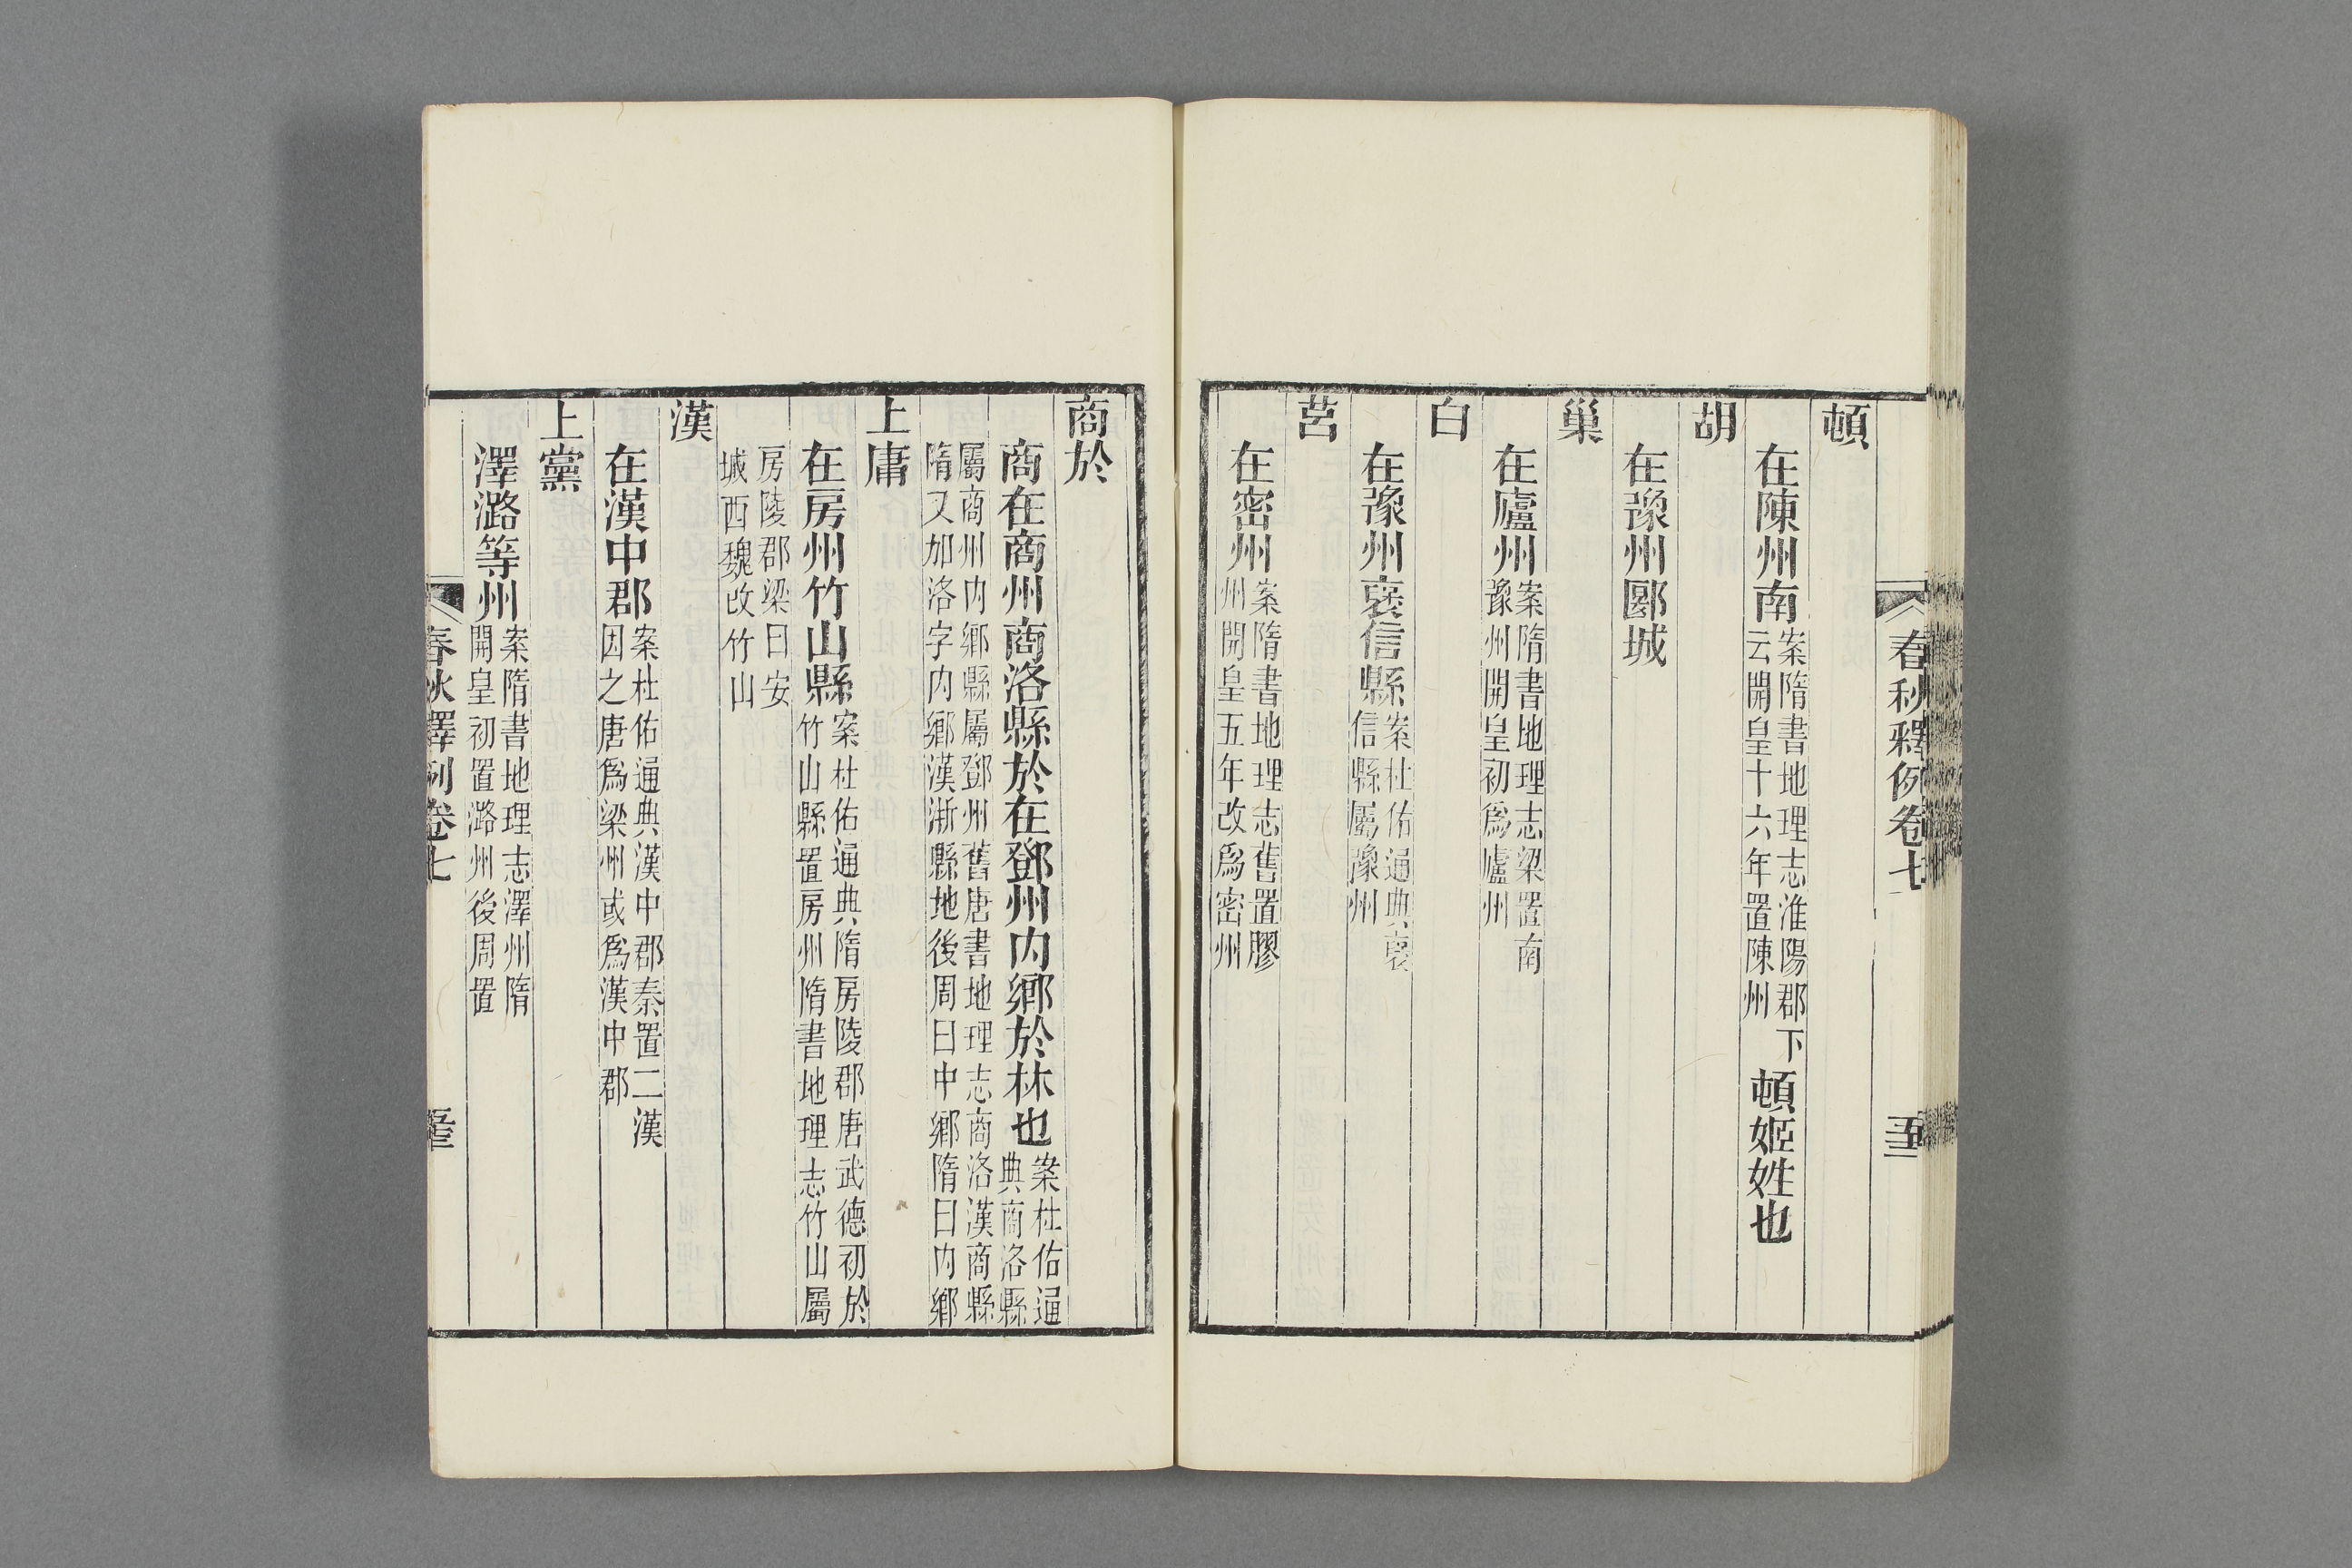 春秋釋例卷七
頓
在陳州南案隋書地理志淮陽郡下云開皇十六年置陳州頓姬姓也
胡
在豫州郾城
巢
在廬州案隋書地理志梁置南豫州開皇初爲廬州
白
在豫州襃信縣案杜佑通典襃信縣屬豫州
莒
在密州案隋書地理志舊置膠州開皇五年改爲密州
商於
商在商州商洛縣於在鄧州内鄉於林也案杜佑通典商洛縣
屬商州内鄉縣屬鄧州舊唐書地理志商洛漢商縣隋又加洛字内鄉漢淅縣地後周曰中鄉隋曰内鄉
上庸
在房州竹山縣案杜佑通典隋房陵郡唐武德初於竹山縣置房州隋書地理志竹山屬
房陵郡梁曰安城西魏改竹山
漢
在漢中郡案杜佑通典漢中郡秦置二漢因之唐爲梁州或爲漢中郡
上黨
澤潞等州案隋書地理志澤州隋開皇初置潞州後周置
春秋釋例卷七